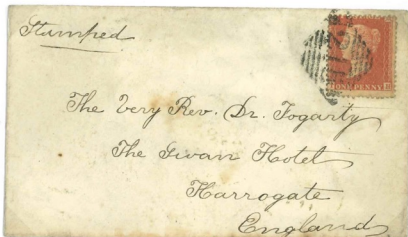 Stamped
ONE PENNY
The Very Rev. Dr. Fogarty
The Swan Hotel
Harrogate
England